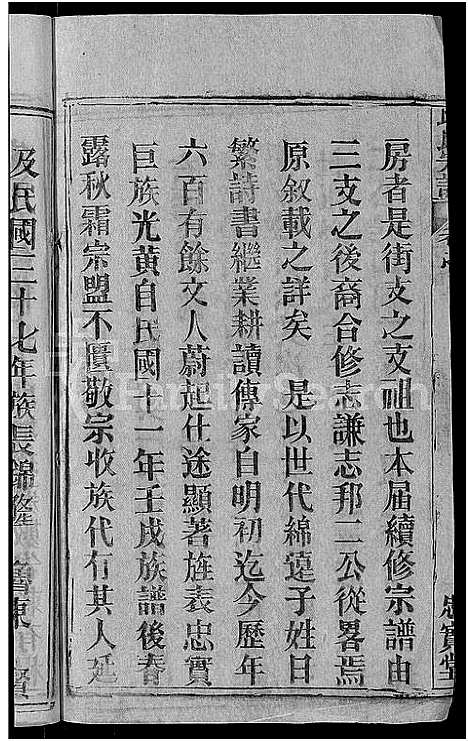 房者是街支之支祖也本届續修宗譜由
三支之後裔合修志謙志邦二公從畧焉
原敘載之詳矣　是以世代綿遠子姓日
繁詩書繼業耕讀傳家自明初迄今歷年
六百有餘文人蔚起仕途顯著旌表忠實
巨族光黃自民國十一年壬戌族譜後春
露秋霜宗盟不匱敬宗收族代有其人延
及民國三十七年族長錦
忠實堂
FamilySearch